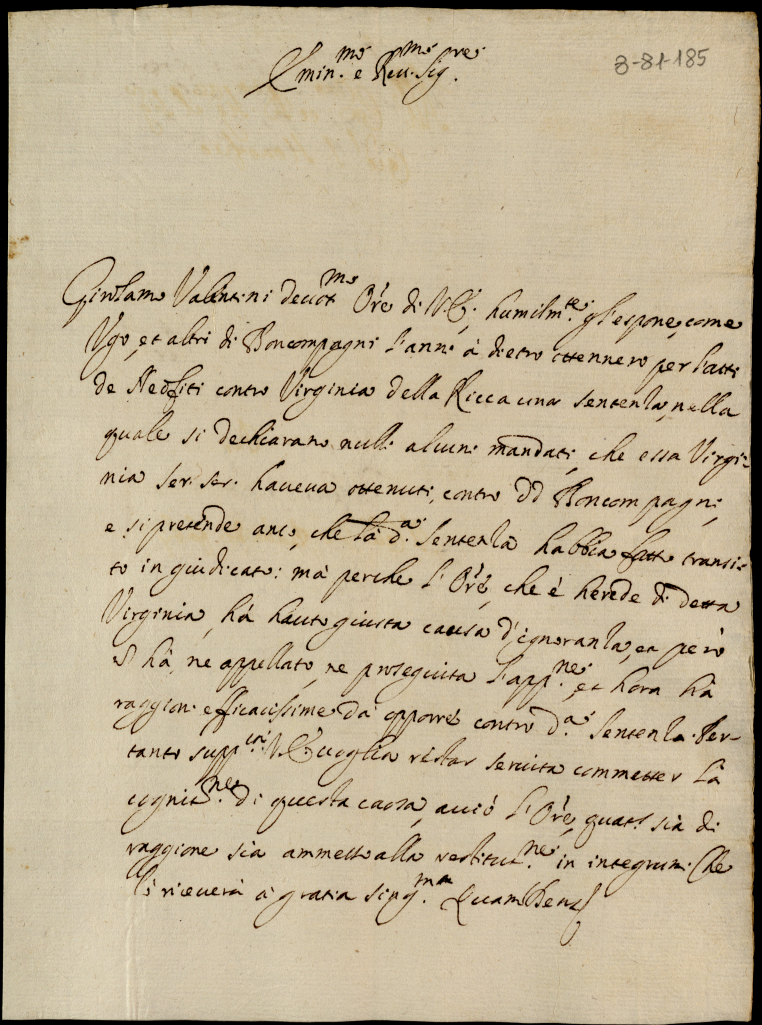 8-81-185
Emin.mo e Reu.mo Sig.re
Girolamo Valentini deuot.mo Ore di V.E. humilm.te gl'espone, come
Ugo, et altri di Boncompagni l'anni à dietro ottennero per l'atti
de Neofiti contro Virginia della Ricca una sentenza, nella
quale si dechiarano nulli alcuni mandati, che essa Virgi-
nia ser. ser. haueua ottenuti, contro DD Boncompagni,
e si pretende anco, che la d.a sentenza habbia fatto transi-
to in giudicato: mà perche l'Ore, che è herede di detta
Virginia, hà hauto giusta causa d'ignoranza, et però
hà, ne appellato, ne proseguita l'app.ne, et hora hà
raggioni efficacissime da opporre contro d.a sentenza. Per-
tanto supp.ca V.E. uoglia restar seruita commetter la
cognit.ne di questa causa, acciò l'Ore, quat.s sia di
raggione sia ammesso alla restitut.ne in integrum. Che
lo riceuerà à gratia sing.ma Quam Deus